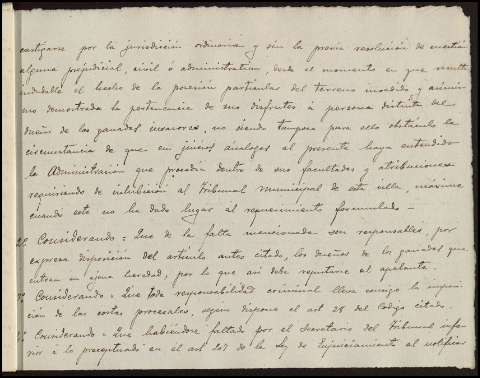 castigarse por la jurisdicción ordinaria y sin la previa resolución de cuestión
alguna prejudicial, civil ó administrativa, desde el momento en que resulta
indudable el hecho de la posesión particular del terreno invadido y asimis-
mo demostrada la pertenencia de sus disfrutes á persona distinta del
dueño de los ganados invasores, no siendo tampoco para ello obstáculo la
circunstancia de que en juicios análogos al presente haya entendido
la Administración que procedia dentro de sus facultades y atribuciones
requiriendo de inhibición al Tribunal municipal de esta villa, máxime
cuando este no ha dado lugar al requerimiento formulado -
Considerando: Que de la falta mencionada son responsables, por
expresa disposición del artículo antes citado, los dueños de los ganados que
entran en agena heredad, por lo que asi debe reputarse al apelante.
Considerando: Que toda responsabilidad criminal lleva consigo la imposi-
ción de las costas procesales, segun dispone el art 28 del Código citado.
Considerando: Que habiéndose faltado por el Secretario del Tribunal infe-
rior á lo preceptuado en el art 207 de la Ley de Enjuiciamiento al notificar